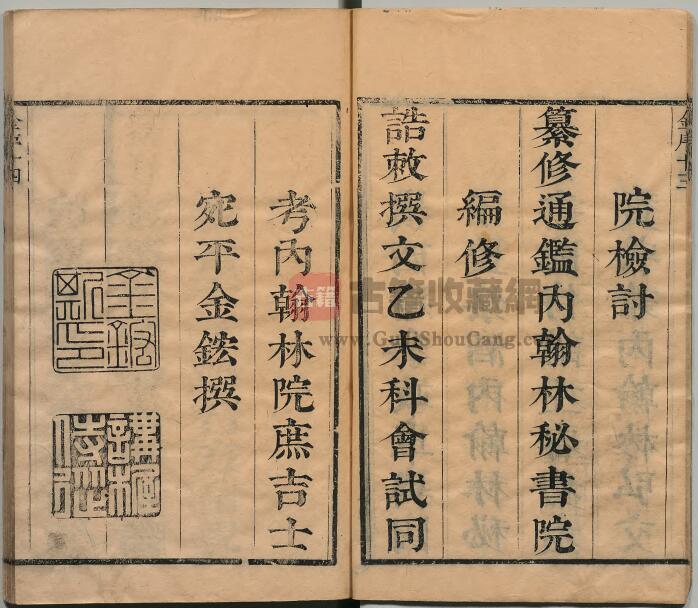 院檢討
纂修通鑑內翰林秘書院
編修
誥敕撰文乙未科會試同
考內翰林院庶吉士
宛平金鋐撰
金鋐
講幄侍從
金序十三
金序十四
古籍收藏網
www.GuJiShouCang.com